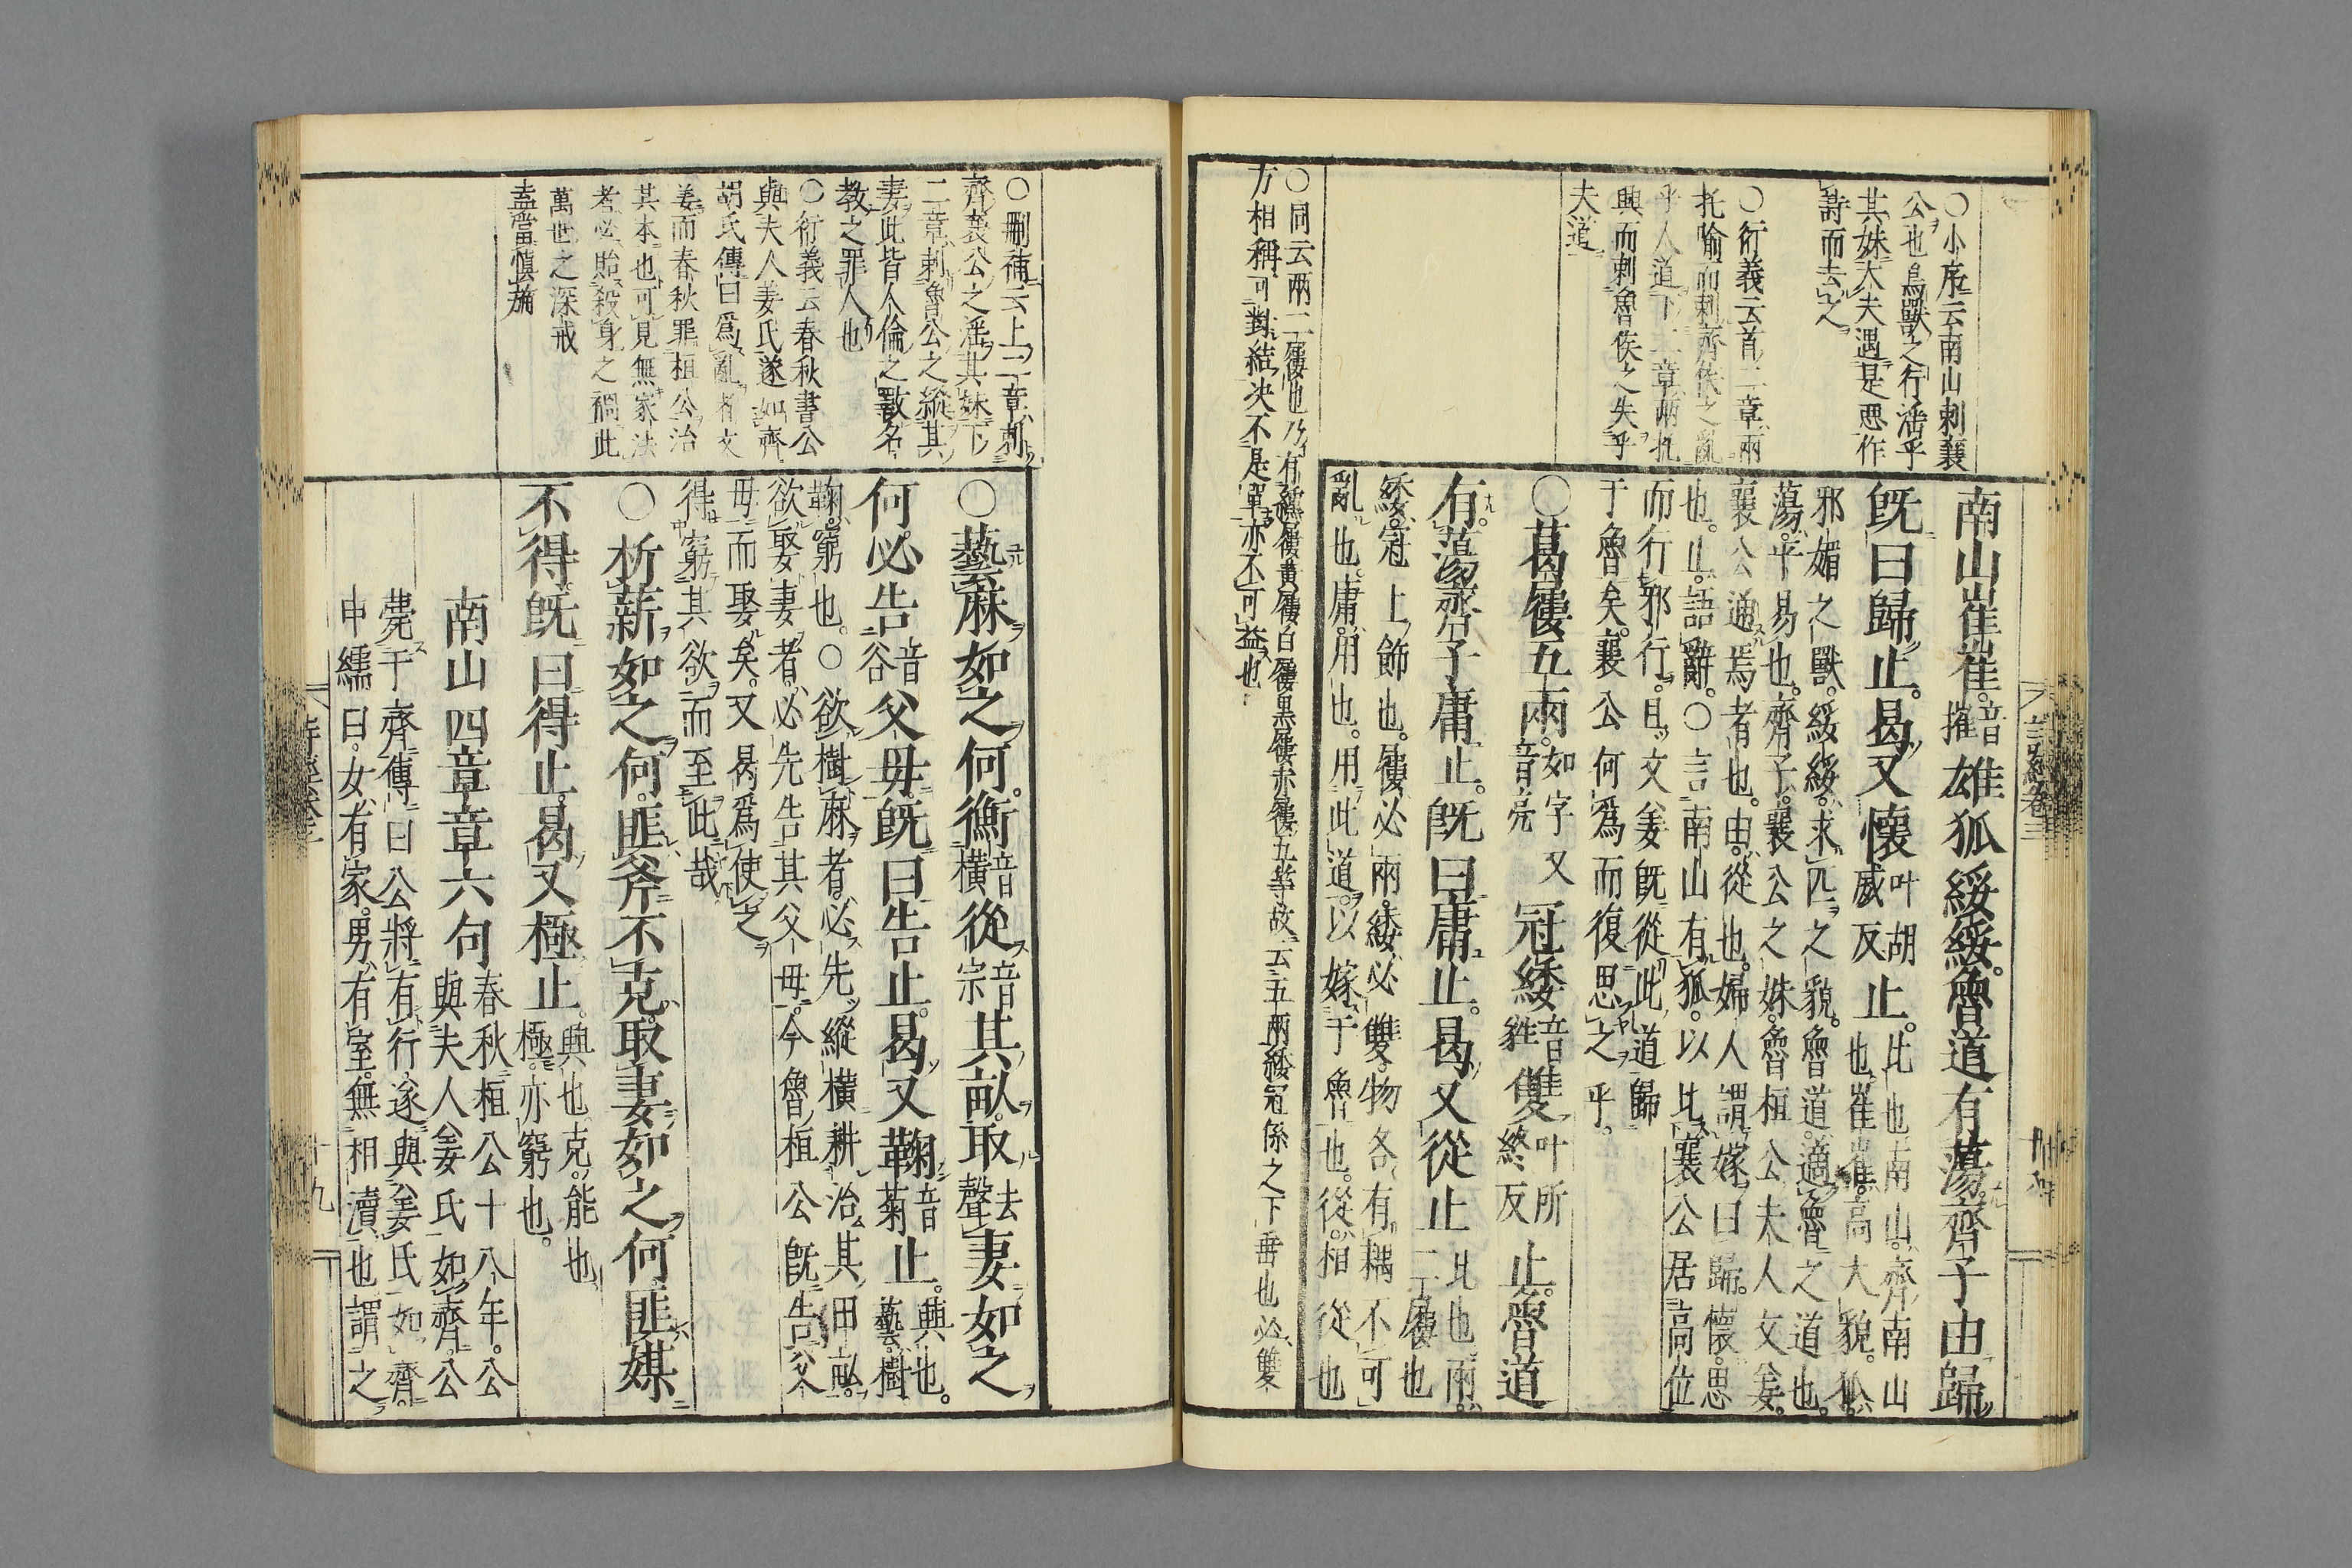 ○小序云南山刺襄
公也鳥獸之行淫乎
其妹大夫遇是惡作
詩而去之
○衍義云首二章兩
托喻而刺齊侯之亂
乎人道下二章兩托
興而刺魯侯之失乎
夫道
南山崔崔音摧雄狐綏綏魯道有蕩齊子由歸
既曰歸止曷又懷叶胡威反止比也南山齊南山
也崔崔高大貌狐
邪媚之獸綏綏求匹之貌魯道適魯之道也
蕩平易也齊子襄公之妹魯桓公夫人文姜
襄公通焉者也由從也婦人謂嫁曰歸懷思
也止語辭○言南山有狐以比襄公居高位
而行邪行且文姜既從此道歸
于魯矣襄公何爲而復思之乎
○葛屨五兩如字又音亮冠緌音蕤雙叶所終反止魯道
有蕩齊子庸止既曰庸止曷又從止比也兩
二屨也
緌冠上飾也屨必兩緌必雙物各有耦不可
亂也庸用也用此道以嫁于魯也從相從也
○同云兩二屨也乃有繶屨黃屨白屨黑屨赤屨五等故云五兩緌冠係之下垂也必雙
方相稱可對結决不是單亦不可益也
○刪補云上二章刺
齊襄公之淫其妹下
二章刺魯公之縱其
妻此皆人倫之斁名
教之罪人也
○衍義云春秋書公
與夫人姜氏遂如齊
胡氏傳曰爲亂者文
姜而春秋罪桓公治
其本也可見無家法
者必貽殺身之禍此
萬世之深戒
盖當慎旃
○蓺麻如之何衡音橫從音宗其畝取去聲妻如之
何必告音谷父母既曰告止曷又鞠音菊止興也
蓺樹
鞠窮也○欲樹麻者必先縱橫耕治其田畝
欲娶妻者必先告其父母今魯桓公既告父
母而娶矣又曷爲使之
得窮其欲而至此哉
○析薪如之何匪斧不克取妻如之何匪媒
不得既曰得止曷又極止興也克能也
極亦窮也
南山四章章六句春秋桓公十八年公
與夫人姜氏如齊公
薨于齊傳曰公將有行遂與姜氏如齊
申繻曰女有家男有室無相瀆也謂之
詩經卷三
十九